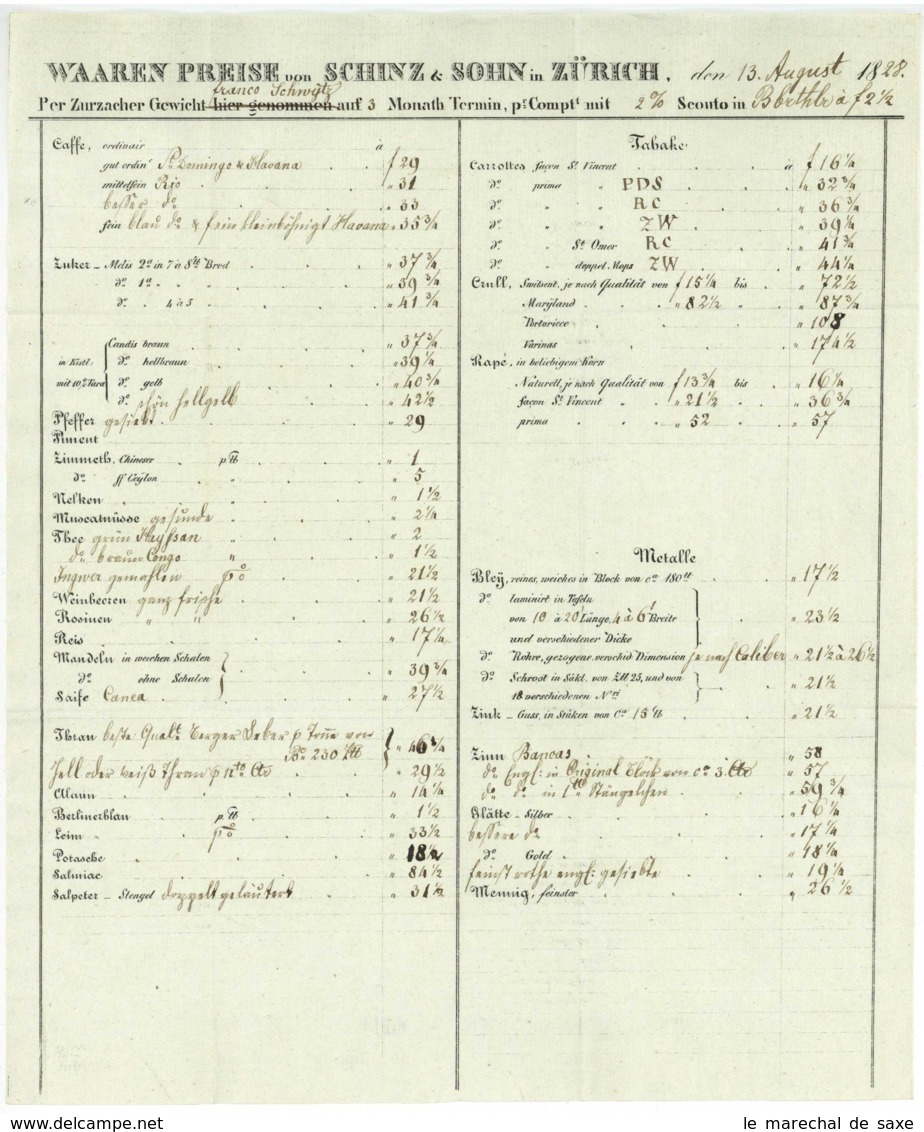 WAAREN PREISE von SCHINZ & SOHN in ZÜRICH, den 13. August 1828.
franco Schwytz
Per Zurzacher Gewicht hier genommen auf 3 Monath Termin, pr. Comptt mit 2% Sconto in Bbrthlr à f 2 1/2
Caffe, ordinair à
gut ordinr St. Domingo & Havana f 29
mittelfein Rio " 31
besser do " 33
fein blau do & fein kleinböhnigt Havana " 35 3/4
Zuker - Melis 2da in 7 à 8 tt Brod " 37 3/4
do 1a " " " 39 3/4
do " 4 à 5 " 41 3/4
Candis braun " 37 3/4
in Kistl: do hellbraun " 39 1/4
mit 10% Tara do gelb " 40 3/4
do schön hellgelb " 42 1/2
Pfeffer gesiebt " 29
Piment
Zimmeth, Chineser p. tt " 1
do ff Ceylon " " 5
Nelken " " 1 1/2
Muscatnüsse gesunde " " 2 1/4
Thee grün Hayssan " " 2
do braun Congo " " 1 1/2
Ingwer gemahlen po " 21 1/2
Weinbeeren ganz frische " 21 1/2
Rosinen " " " 26 1/2
Reis " 17 1/4
Mandeln in weichen Schalen
do ohne Schalen " 39 3/4
Saife Canea " 27 1/2
Thran beste Qualt. Berger Leber p Tonn von
Bo 230 tto " 46 3/4
Hell oder weiß Thran p nto Cto " 29 1/2
Alaun " 14 1/4
Berlinerblau p. tt " 1 1/2
Leim po " 33 1/2
Potasche " 18 1/2
Salmiac " 84 1/2
Salpeter - Stengel doppelt geläutert " 31 1/2
Tabake
Carrottes façon St. Vincent à f 16 1/4
do prima " PDS " 32 3/4
do " " RC " 36 3/4
do " " ZW " 39 1/4
do " St. Omer RC " 41 3/4
do " doppel Mops ZW " 44 1/4
Crull, Switsent, je nach Qualität von f 15 1/4 bis " 72 1/2
Marÿland " 82 1/2 " " 87 3/4
Portoricco " 108
Varinas " 174 1/2
Rapé, in beliebigem Korn
Naturell, je nach Qualität von f 13 3/4 bis " 16 1/4
façon St. Vincent " " 21 1/2 " " 36 3/4
prima " 52 " 57
Metalle
Bleÿ, reines, weiches in Block von ca 180 tt " 17 1/2
do laminirt in Tafeln
von 10 à 20' Länge, 4 à 6' Breite " 23 1/2
und verschiedener Dicke
do Rohre, gezogene verschid Dimension je nach Caliber " 21 1/2 à 26 1/2
do Schroot in Säkl. von ztt 25, und von
18 verschiedenen Nri " 21 1/2
Zink - Guss, in Stüken von Ca 15 tb " 21 1/2
Zinn Bancas " 58
do Engl: in Original Blöck von ca 3 Cto " 57
do do in 1 tt Stängelchen " 59 3/4
Glätte - Silber " 16 1/4
bessere do " 17 1/4
do Gold " 18 1/4
feinst rothe engl: gesiebte " 19 1/4
Mennig, feinster " 26 1/2
le marechal de saxe